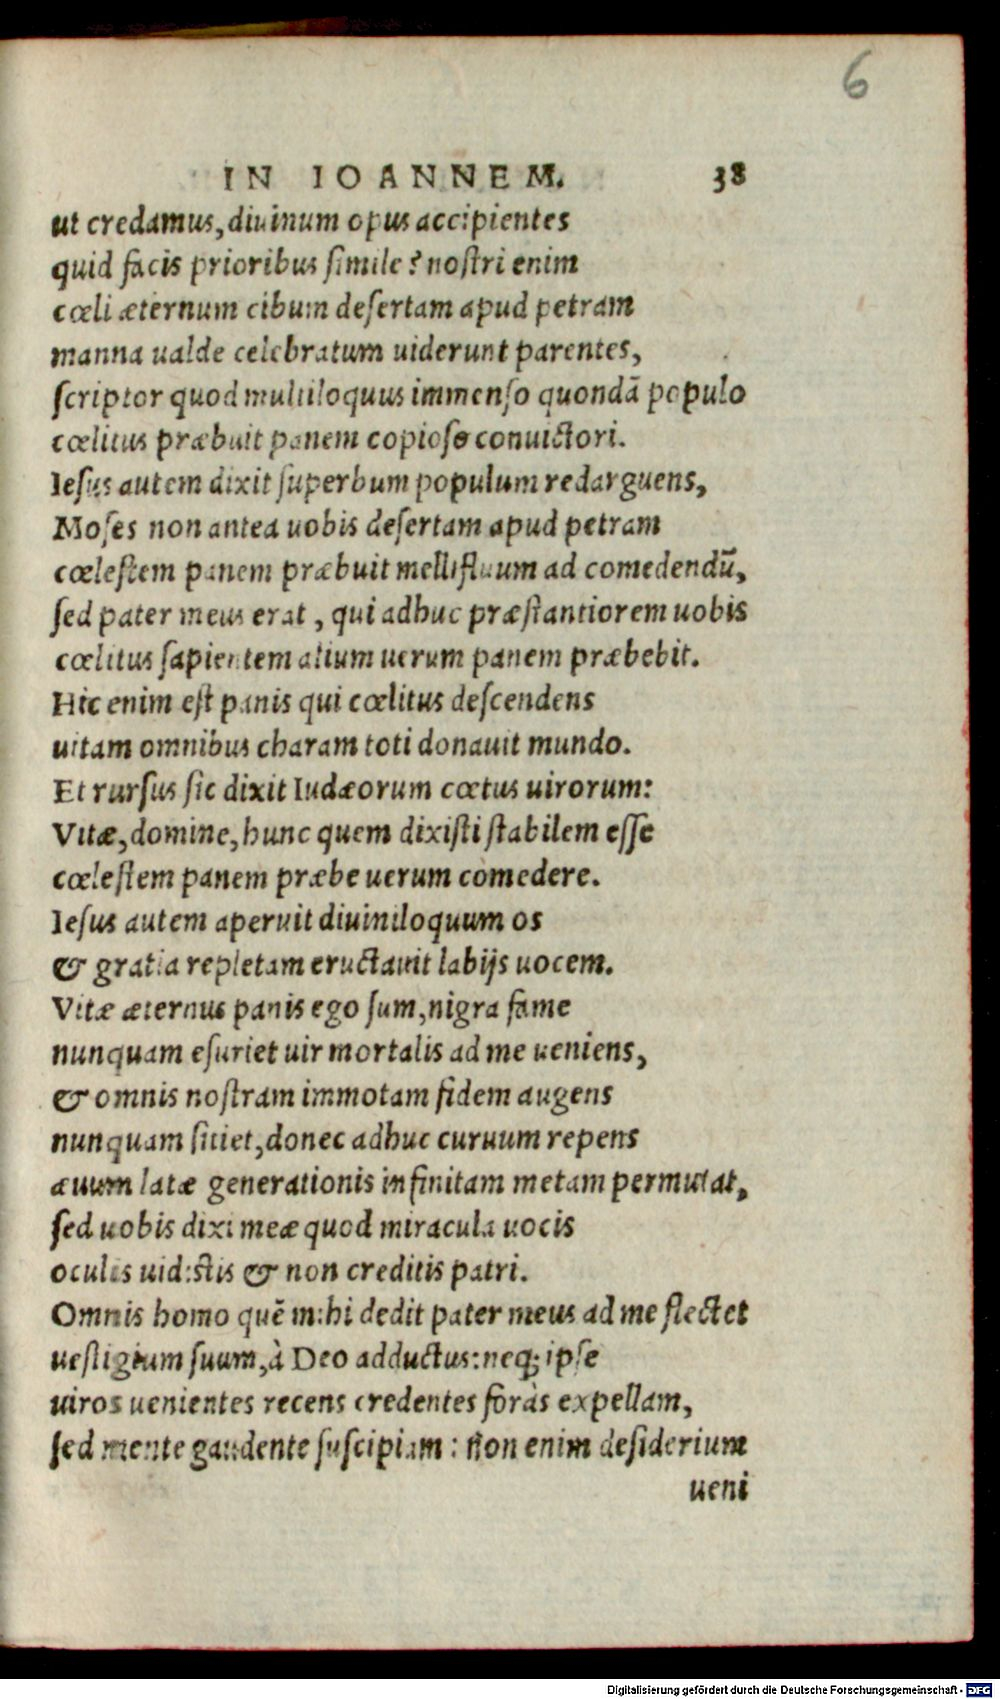 6
IN IOANNEM. 38
ut credamus, diuinum opus accipientes
quid facis prioribus simile? nostri enim
cœli æternum cibum desertam apud petram
manna ualde celebratum uiderunt parentes,
scriptor quod multiloquus immenso quondā populo
cœlitus præbuit panem copioso conuictori.
Iesus autem dixit superbum populum redarguens,
Moses non antea uobis desertam apud petram
cœlestem panem præbuit mellifluum ad comedendū,
sed pater meus erat, qui adhuc præstantiorem uobis
cœlitus sapientem alium uerum panem præbebit.
Hic enim est panis qui cœlitus descendens
uitam omnibus charam toti donauit mundo.
Et rursus sic dixit Iudæorum cœtus uirorum:
Vitæ, domine, hunc quem dixisti stabilem esse
cœlestem panem præbe uerum comedere.
Iesus autem aperuit diuiniloquum os
& gratia repletam eructauit labijs uocem.
Vitæ æternus panis ego sum, nigra fame
nunquam esuriet uir mortalis ad me ueniens,
& omnis nostram immotam fidem augens
nunquam sitiet, donec adhuc curuum repens
æuum latæ generationis infinitam metam permutat,
sed uobis dixi meæ quod miracula uocis
oculis uidistis & non creditis patri.
Omnis homo quē mihi dedit pater meus ad me flectet
uestigium suum, à Deo adductus: neq; ipse
uiros uenientes recens credentes foràs expellam,
sed mente gaudente suscipiam: non enim desiderium
ueni
Digitalisierung gefördert durch die Deutsche Forschungsgemeinschaft - DFG